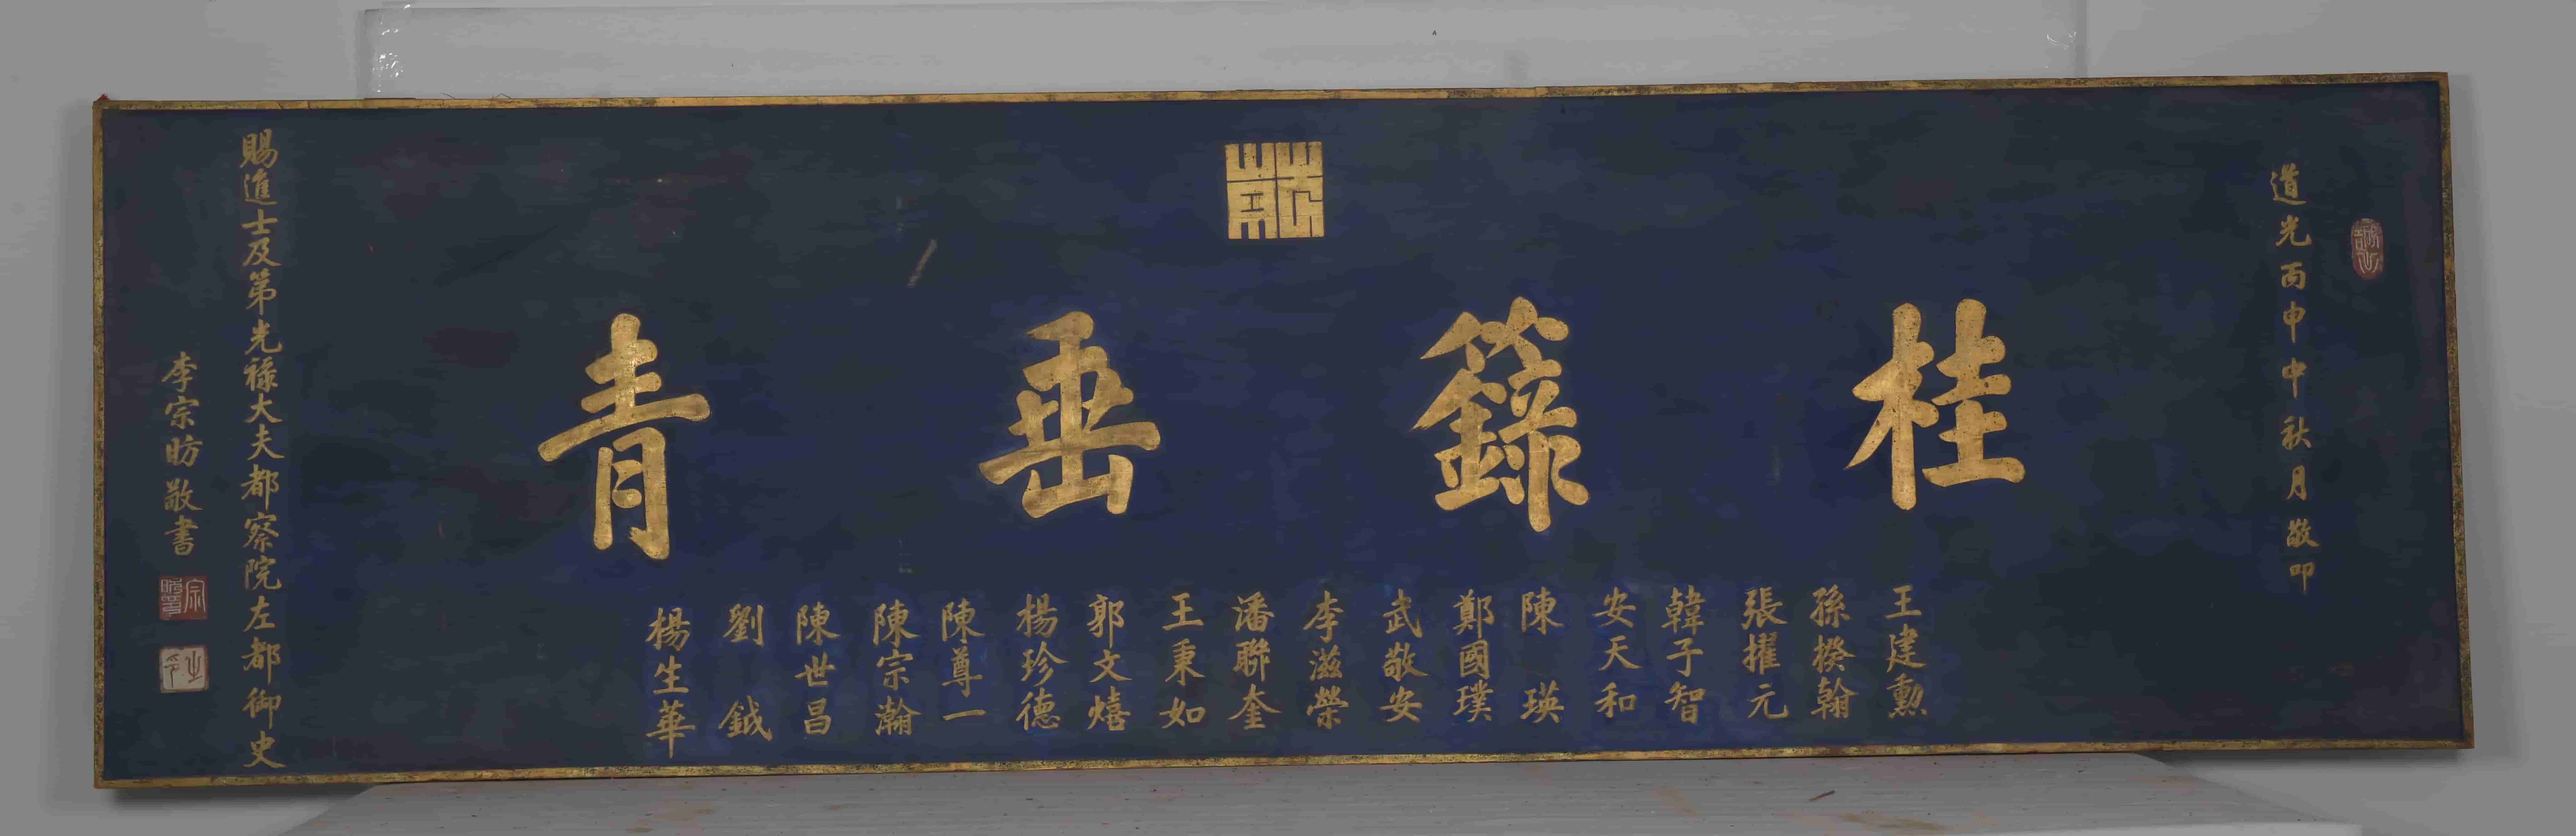 道光丙申中秋月敬叩
桂籙垂青
王建勲
孫揆翰
張擢元
韓子智
安天和
陳瑛
鄭國璞
武敬安
李滋榮
潘聯奎
王秉如
郭文熺
楊珍德
陳尊一
陳宗瀚
陳世昌
劉鉞
楊生華
賜進士及第光祿大夫都察院左都御史
李宗昉敬書